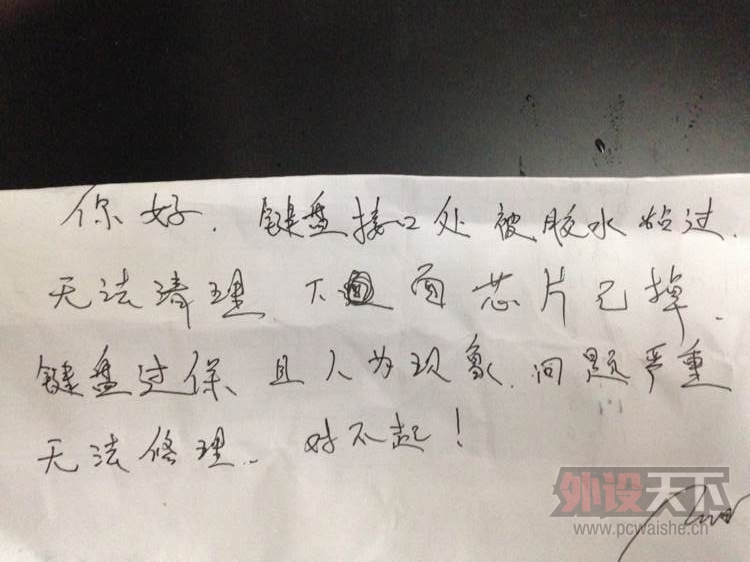 你好. 键盘接口处被胶水粘过.
无法清理. 下面芯片已掉.
键盘过保、且人为现象. 问题严重
无法修理. 对不起!
外设天下
www.pcwaishe.cn